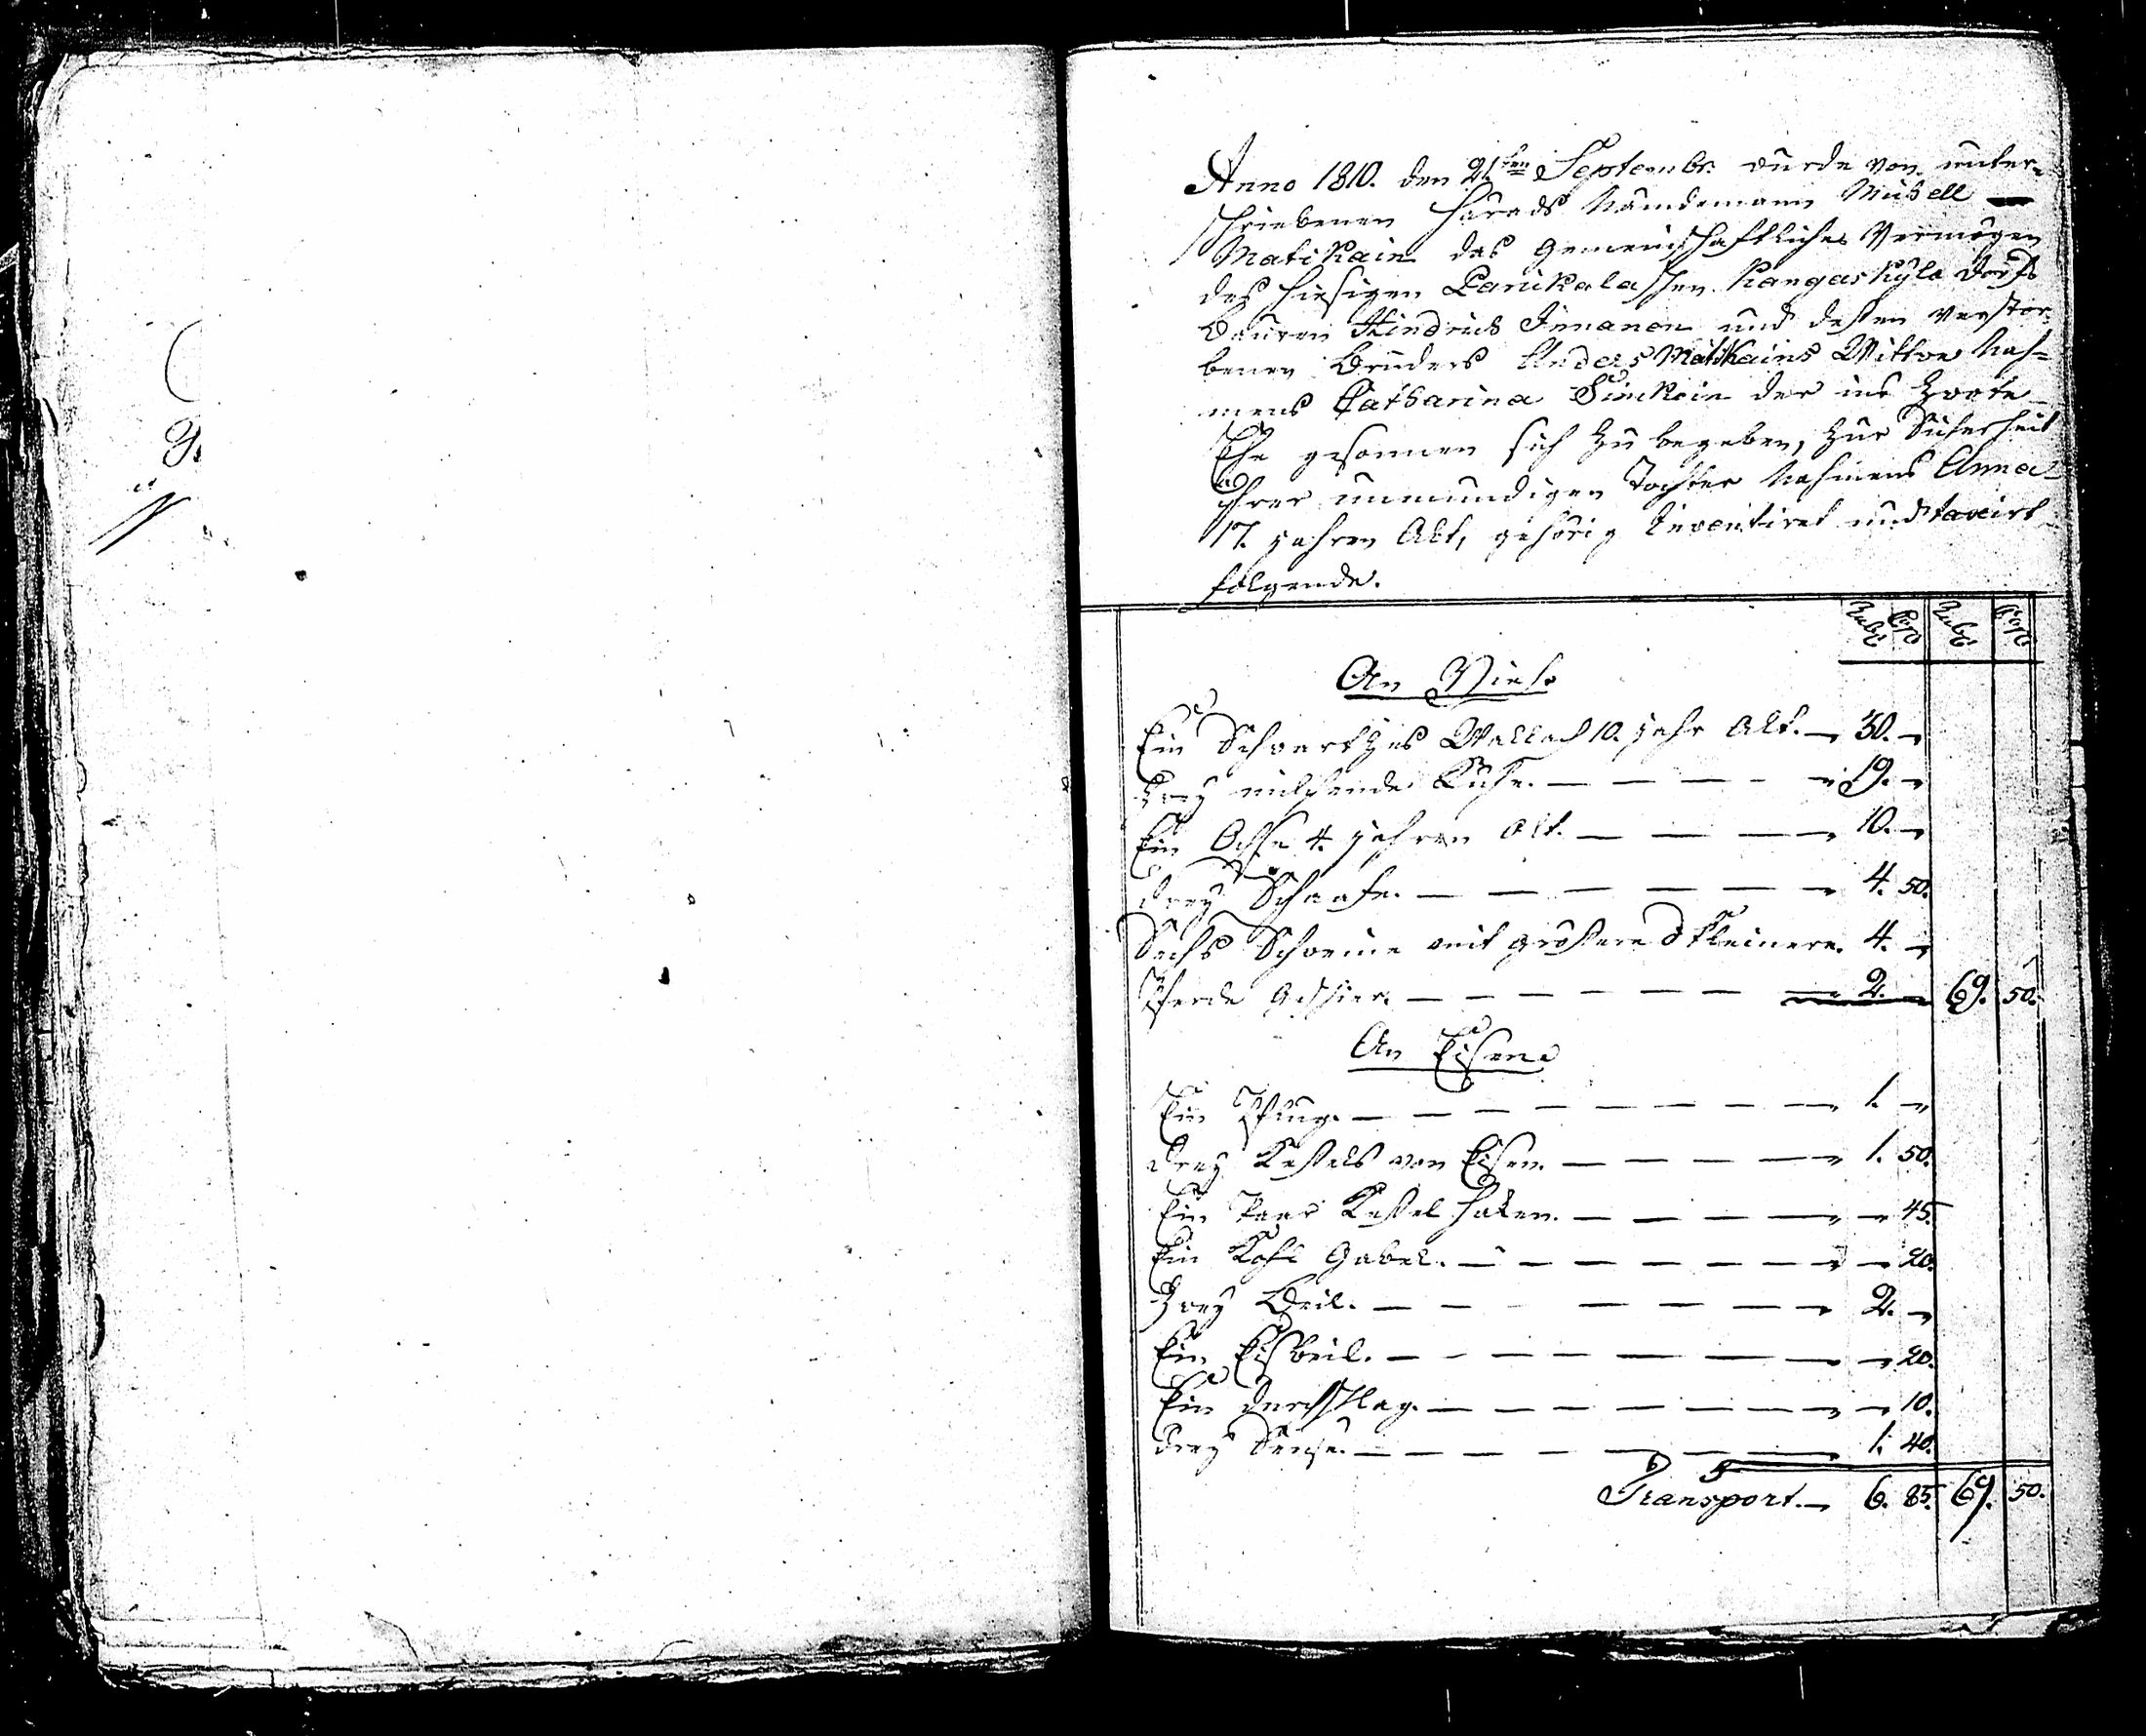 Anno 1810. den 21.ten Septembr. wurde von unter-
schriebenen Härads Nämdemann Michell
Matikain das Gemeinschaftliches Vermögen
des hiesigen Parikalaschen Kangaskylä Dorfs
Bauren Hindrich Innanen und dessen verstor-
benen Bruders Anders Matikains Wittwe Nah=
mens Catharina Simkain der ins Zwote
Ehe gesonnen sich zu begeben, zur Sicherheit
ihrer unmundigen Tochter Nahmens Anna
17. jahren Alt, gehörig Inventiret und taxirt
folgende.
Rubl. Cop. Rubl. Cop.
An Vieh
Ein Schwartzes Wallach 10. jahr Alt. 30.
Zwey milchende Kühe. 19.
Ein Ochse 4. jahren Alt. 10.
drey Schaafe. 4. 50.
Sechs Schweine mit grössere & kleinere. 4.
Pferde Geschier. 2. 69. 50.
An Eisen
Ein Pflug. 1.
drey Kessels von Eisen. 1. 50.
Ein Paar Kessel haken. 45.
Ein Kohl Gabel. 20.
Zwey Beil. 2.
Ein Eisbeil. 20.
Ein durchschlag. 10.
drey Sense. 1. 40.
Transport. 6. 85. 69. 50.